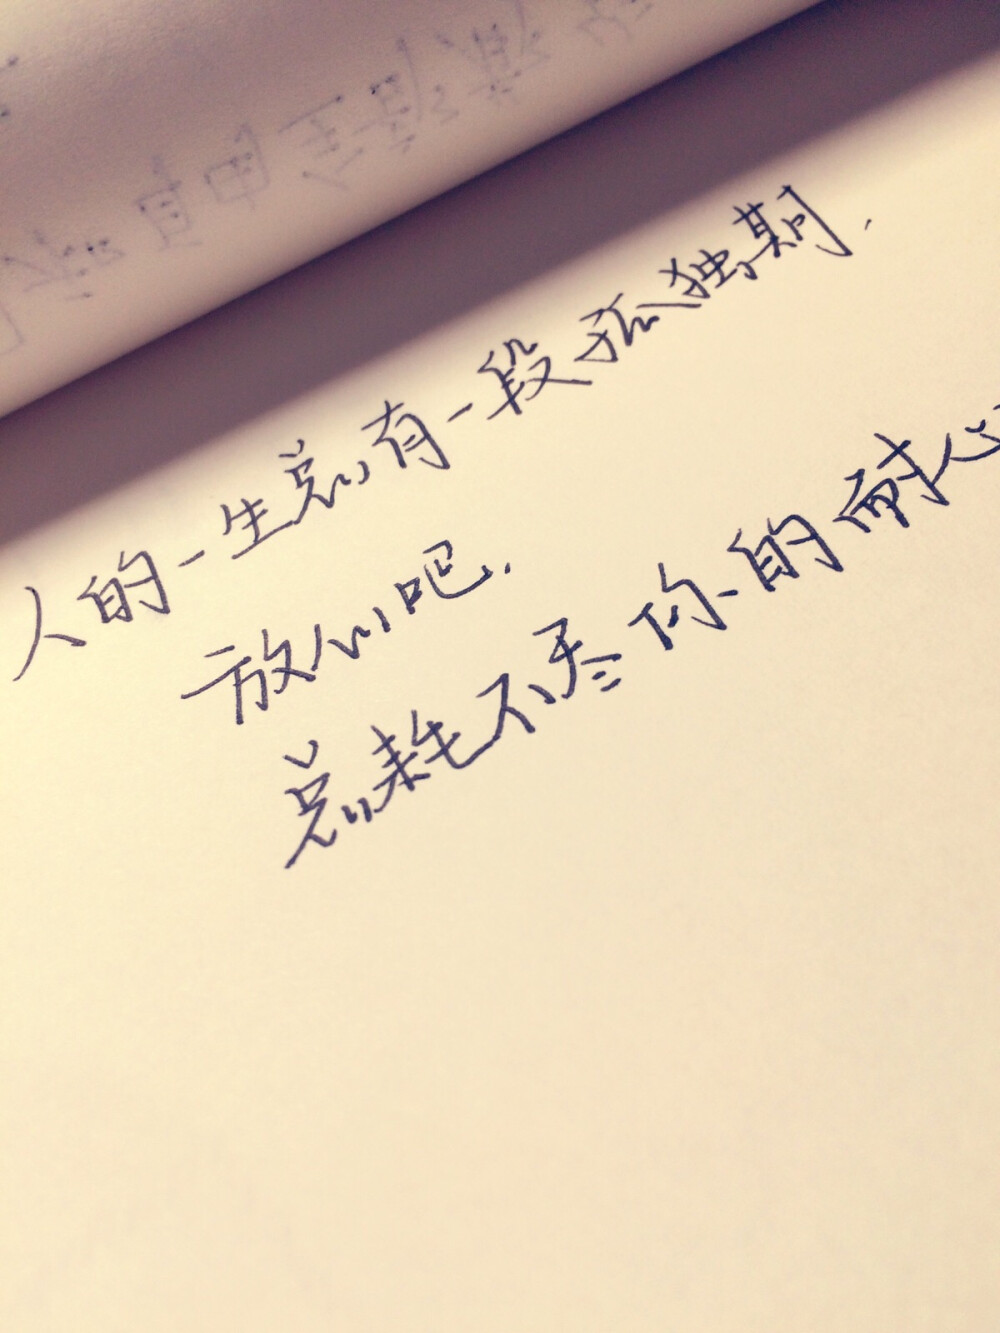 人的一生总有一段孤独期.
放心吧.
总耗不尽你的耐心